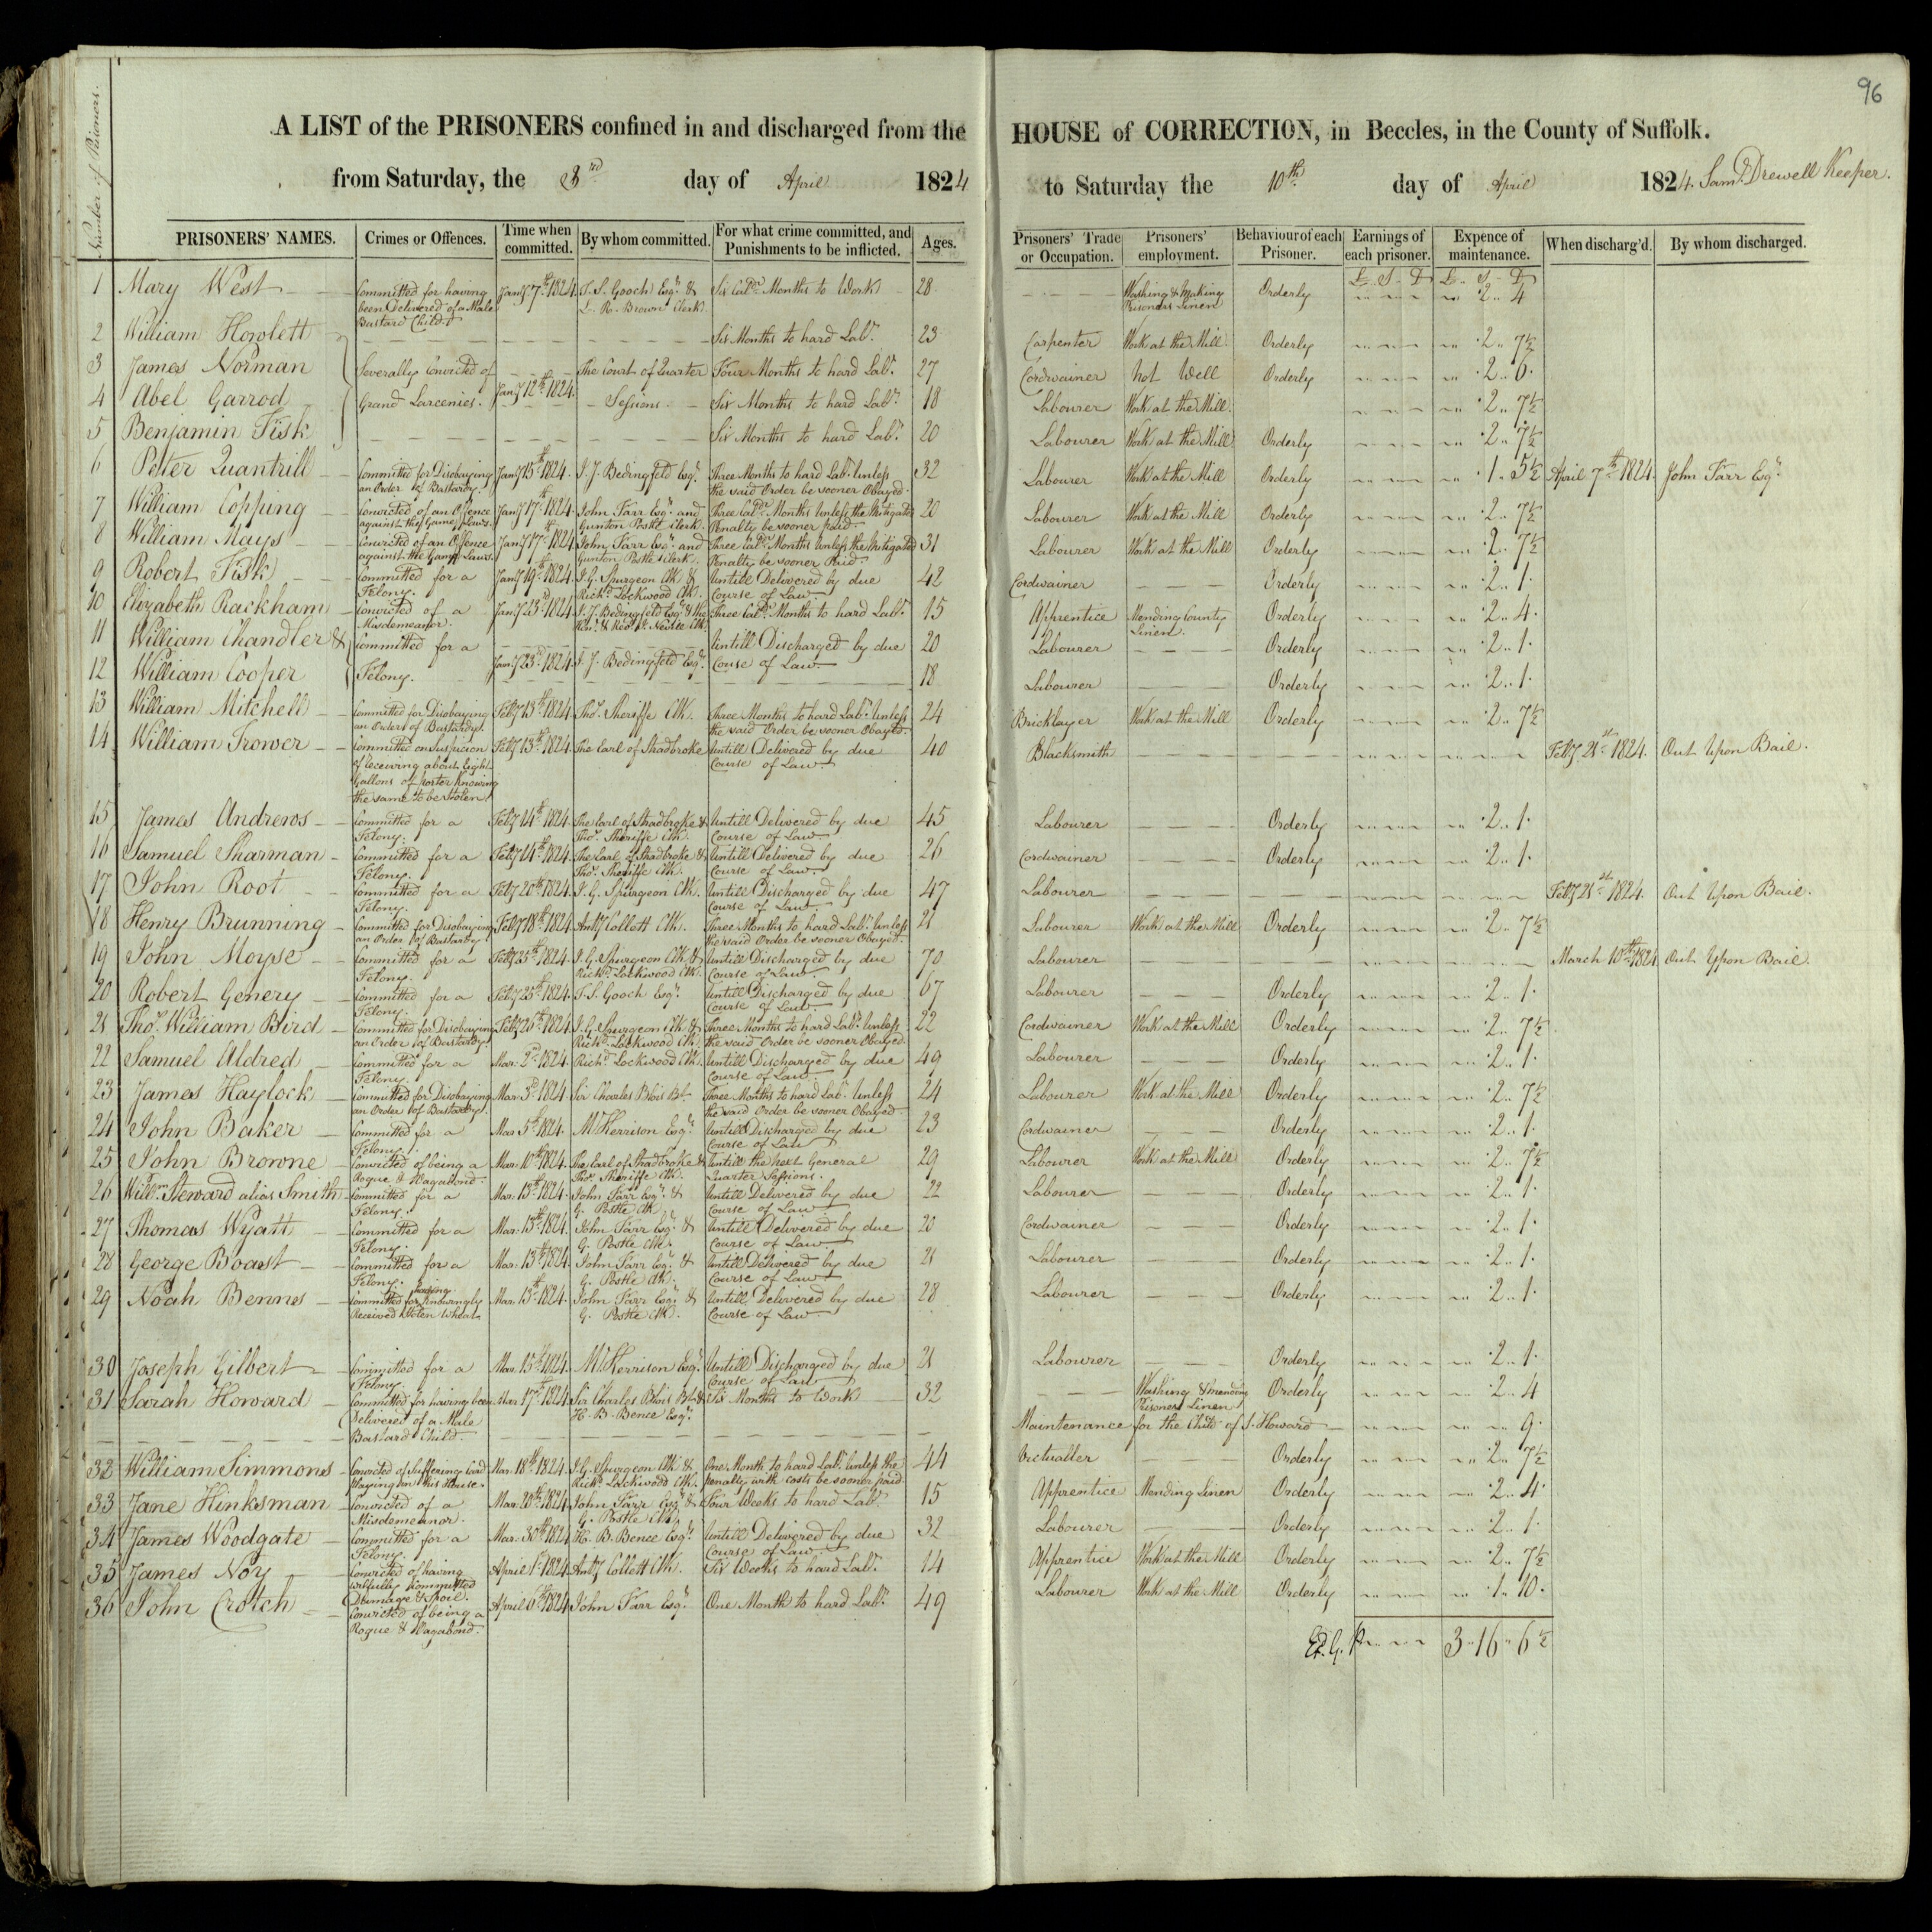 96
Number of Prisoners.
A LIST of the PRISONERS confined in and discharged from the HOUSE of CORRECTION, in Beccles, in the County of Suffolk.
from Saturday, the 3rd day of April 1824 to Saturday the 10th day of April 1824. Saml. Drewell Keeper.
PRISONERS' NAMES. Crimes or Offences. Time when committed. By whom committed. For what crime committed, and Punishments to be inflicted. Ages. Prisoners' Trade or Occupation. Prisoners' employment. Behaviour of each Prisoner. Earnings of each prisoner. Expence of maintenance. When discharg'd. By whom discharged.
£ S D £ S D
1 Mary West Committed for having been Delivered of a Male Bastard Child Jany 7th 1824. T. S. Gooch Esqr. & L. R. Brown Clerk Six Calr. Months to Work 28 Washing & Making Prisoners Linen Orderly 2 4
2 William Howlett Six Months to hard Labr. 23 Carpenter Work at the Mill Orderly 2 7½
3 James Norman Severally Convicted of The Court of Quarter Four Months to hard Labr. 27 Cordwainer not Well Orderly 2 6
4 Abel Garrod Grand Larcenies. Jany 12th 1824. Sessions Six Months to hard Labr. 18 Labourer Work at the Mill 2 7½
5 Benjamin Fisk Six Months to hard Labr. 20 Labourer Work at the Mill Orderly 2 7½
6 Peter Quantrill Committed for Disobaying an Order of Bastardy. Jany 15th 1824. J. J. Bedingfeld Esqr. Three Months to hard Labr. Unless the said Order be sooner Obayed. 32 Labourer Work at the Mill Orderly 1 5½ April 7th 1824. John Farr Esqr.
7 William Copping Convicted of an Offence against the Game Laws. Jany 17th 1824. John Farr Esqr. and Gunton Postle Clerk Three Calr. Months Unless the Mitigated Penalty be sooner paid. 20 Labourer Work at the Mill Orderly 2 7½
8 William Mays Convicted of an Offence against the Game Laws Jany 17th 1824 John Farr Esqr. and Gunton Postle Clerk. Three Calr. Months Unless the Mitigated Penalty be sooner Paid. 31 Labourer Work at the Mill Orderly 2 7½
9 Robert Fisk Committed for a Felony. Jany 19th 1824. J. G. Spurgeon Clk & Richd. Lockwood Clk. Untill Delivered by due Course of Law 42 Cordwainer Orderly 2 1
10 Elizabeth Rackham Convicted of a Misdemeanor. Jany 23rd 1824 J. J. Bedingfeld Esqr. & the Honl. & Revd. Nevile Clk Three Calr. Months to hard Labr. 15 Apprentice Mending County Linen. Orderly 2 4
11 William Chandler & Committed for a Untill Discharged by due 20 Labourer Orderly 2 1
12 William Cooper Felony. Jany 23rd 1824. J. J. Bedingfeld Esqr. Couse of Law 18 Labourer Orderly 2 1
13 William Mitchell Committed for Disobaying an Orders of Bastardy. Feby 13th 1824 Thos. Sheriffe Clk. Three Months to hard Labr. Unless the said Order be sooner Obayed. 24 Bricklayer Work at the Mill Orderly 2 7½
14 William Trower Committed on Suspicion of Receiving about Eight Gallons of porter Knowing the same to be Stolen Feby 13th 1824. The Earl of Stradbroke Untill Delivered by due Course of Law 40 Blacksmith Feby 21st 1824. Out Upon Bail.
15 James Andrews Committed for a Felony. Feby 14th 1824. The Earl of Stradbroke & Thos. Sheriffe Clk. Untill Delivered by due Course of Law 45 Labourer Orderly 2 1
16 Samuel Sharman Committed for a Felony. Feby 14th 1824. The Earl of Stradbroke & Thos. Sheriffe Clk. Untill Delivered by due Course of Law 26 Cordwainer Orderly 2 1
17 John Root Committed for a Felony. Feby 20th 1824. J. G. Spurgeon Clk. Untill Discharged by due Course of Law 47 Labourer Feby 21st 1824. Out Upon Bail.
18 Henry Brunning Committed for Disobaying an Order of Bastardy Feby 18th 1824 Anty Collett Clk. Three Months to hard Labr. Unless the said Order be sooner Obayed. 21 Labourer Work at the Mill Orderly 2 7½
19 John Moyse Committed for a Felony. Feby 25th 1824. J. G. Spurgeon Clk & Richd. Lockwood Clk. Untill Discharged by due Course of Law 70 Labourer March 10th 1824 Out Upon Bail.
20 Robert Genery Committed for a Felony. Feby 25th 1824. T. S. Gooch Esqr. Untill Discharged by due Course of Law 67 Labourer Orderly 2 1
21 Thos. William Bird Committed for Disobaying an Order of Bastardy. Feby 26th 1824. J. G. Spurgeon Clk & Richd. Lockwood Clk Three Months to hard Labr. Unless the said Order be sooner Obayed. 22 Cordwainer Work at the Mill Orderly 2 7½
22 Samuel Aldred Committed for a Felony. Mar. 2nd 1824. Richd. Lockwood Clk. Untill Discharged by due Course of Law 49 Labourer Orderly 2 1
23 James Haylock Committed for Disobaying an Order of Bastardy. Mar. 3rd 1824. Sir Charles Blois Bt. Three Months to hard Labr. Unless the said Order be sooner Obayed. 24 Labourer Work at the Mill Orderly 2 7½
24 John Baker Committed for a Felony. Mar. 5th 1824. M. Kerrison Esqr. Untill Discharged by due Course of Law 23 Cordwainer Orderly 2 1
25 John Browne Convicted of being a Rogue & Vagabond. Mar. 10th 1824. The Earl of Stradbroke & Thos. Sheriffe Clk. Untill the Next General Quarter Sessions. 29 Labourer Work at the Mill Orderly 2 7½
26 Willm. Steward alias Smith Committed for a Felony. Mar. 13th 1824. John Farr Esqr. & G. Postle Clk Untill Delivered by due Course of Law 22 Labourer Orderly 2 1
27 Thomas Wyatt Committed for a Felony. Mar. 13th 1824. John Farr Esqr. & G. Postle Clk. Untill Delivered by due Course of Law 20 Cordwainer Orderly 2 1
28 George Boast Committed for a Felony. Mar. 13th 1824. John Farr Esqr. & G. Postle Clk. Untill Delivered by due Course of Law 21 Labourer Orderly 2 1
29 Noah Bennes Committed for having Knowingly Received Stolen Wheat Mar. 13th 1824. John Farr Esqr. & G. Postle Clk. Untill Delivered by due Course of Law 28 Labourer Orderly 2 1
30 Joseph Gilbert Committed for a Felony. Mar. 15th 1824. M. Kerrison Esqr. Untill Discharged by due Course of Law 21 Labourer Orderly 2 1
31 Sarah Howard Committed for having been Delivered of a Male Bastard Child. Mar. 17th 1824. Sir Charles Blois Bt. & H. B. Bence Esqr. Six Months to Work 32 Washing & mending Prisoners Linen Orderly 2 4
Maintenance for the Child of S. Howard 9
32 William Simmons Convicted of Suffering Card Playing in his House Mar. 18th 1824 J. G. Spurgeon Clk & Richd. Lockwood Clk. One Month to hard Labr. Unless the penalty with costs be sooner paid 44 Victualler Orderly 2 7½
33 Jane Hinksman Convicted of a Misdemeanor. Mar. 20th 1824 John Farr Esqr. & G. Postle Clk. Four Weeks to hard Labr. 15 Apprentice Mending Linen Orderly 2 4
34 James Woodgate Committed for a Felony. Mar. 30th 1824 H. B. Bence Esqr. Untill Delivered by due Course of Law 32 Labourer Orderly 2 1
35 James Noy Convicted of having wilfully Committed Damage & Spoil. April 1st 1824 Anty Collett Clk. Six Weeks to hard Labr. 14 Apprentice Work at the Mill Orderly 2 7½
36 John Crotch Convicted of being a Rogue & Vagabond. April 6th 1824 John Farr Esqr. One Month to hard Labr. 49 Labourer Work at the Mill Orderly 1 10
3 16 6½